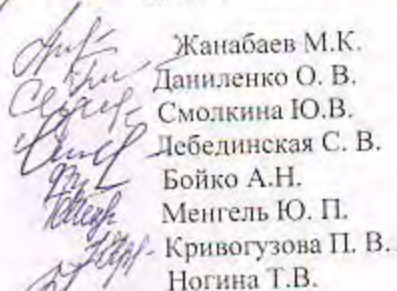 Жанабаев М.К.
Даниленко О. В.
Смолкина Ю.В.
Лебединская С. В.
Бойко А.Н.
Менгель Ю. П.
Кривогузова П. В.
Ногина Т.В.